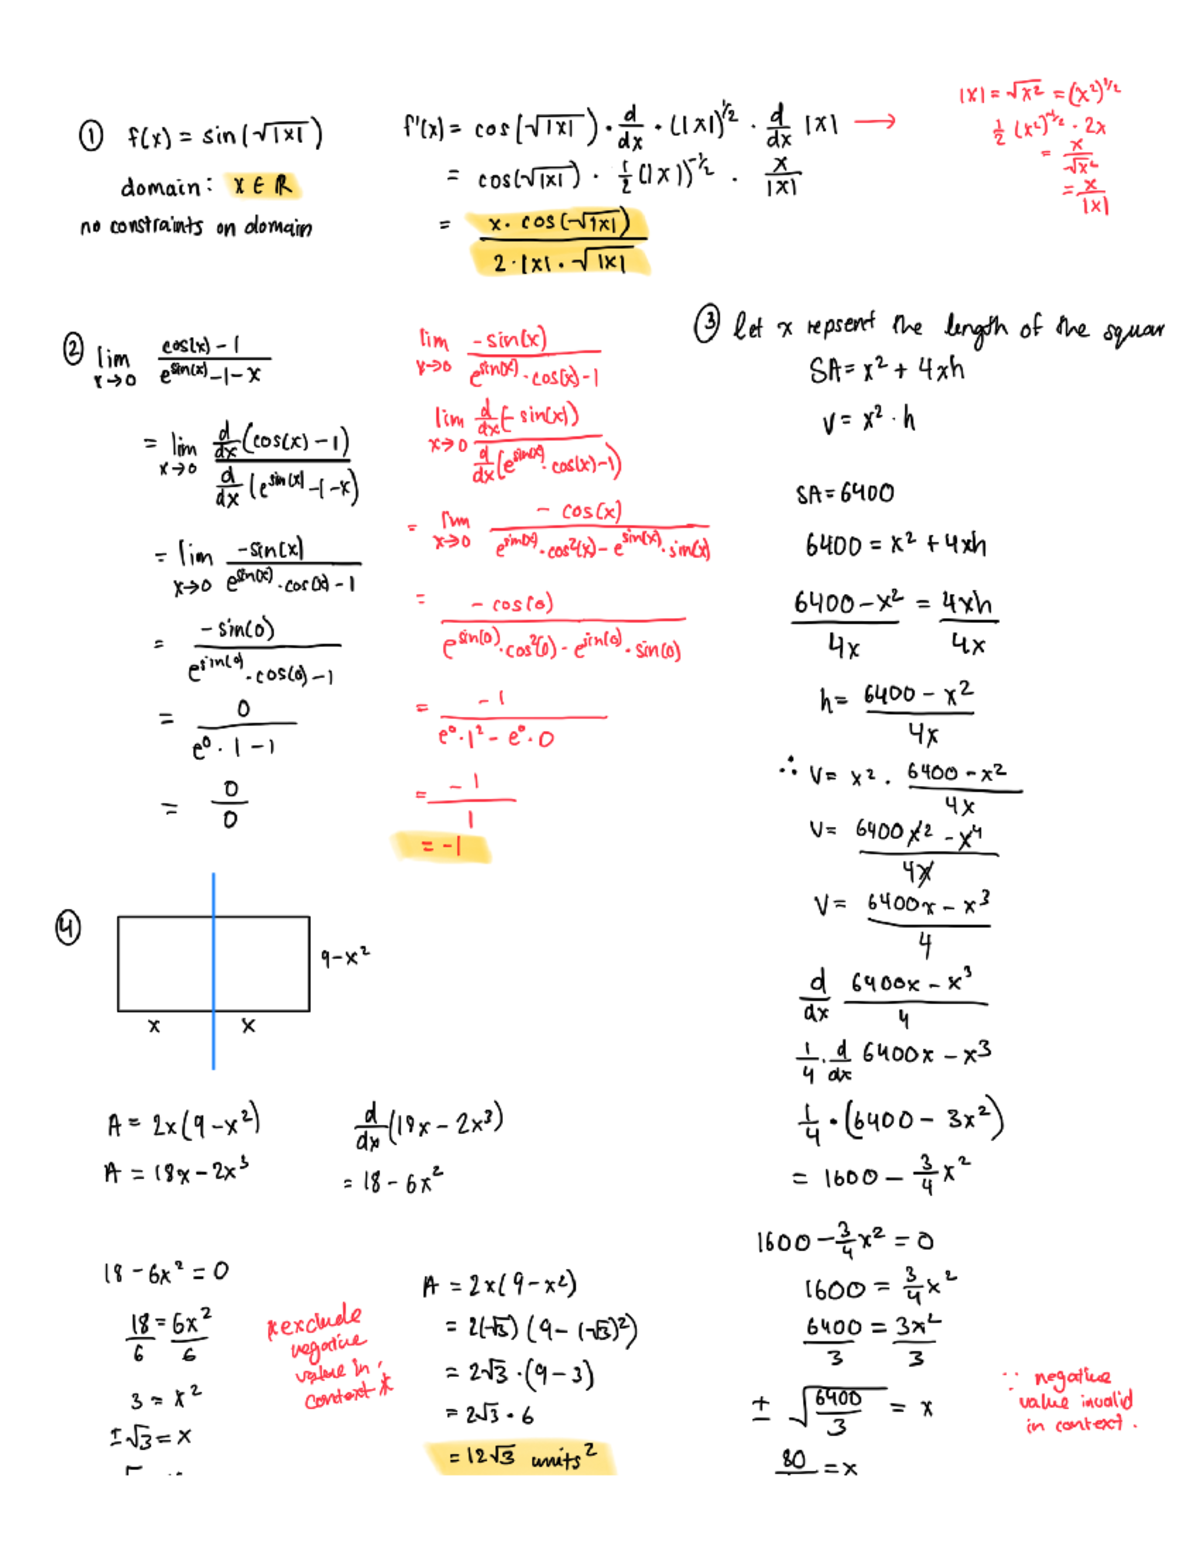 ① f(x) = sin(√|x|)
domain: x ∈ ℝ
no constraints on domain
f'(x) = cos(√|x|) · d/dx · (|x|)^1/2 · d/dx |x| →
= cos(√|x|) · 1/2 (|x|)^-1/2 · x/|x|
= x · cos(√|x|) / 2 · |x| · √|x|
|x| = √x² = (x²)^1/2
1/2 (x²)^-1/2 · 2x
= x/√x²
= x/|x|
② lim x→0 cos(x) - 1 / e^sin(x) - 1 - x
= lim x→0 d/dx (cos(x) - 1) / d/dx (e^sin(x) - 1 - x)
= lim x→0 -sin(x) / e^sin(x) · cos(x) - 1
= -sin(0) / e^sin(0) · cos(0) - 1
= 0 / e⁰ · 1 - 1
= 0/0
lim x→0 -sin(x) / e^sin(x) · cos(x) - 1
lim x→0 d/dx (-sin(x)) / d/dx (e^sin(x) · cos(x) - 1)
= lim x→0 -cos(x) / e^sin(x) · cos²(x) - e^sin(x) · sin(x)
= -cos(0) / e^sin(0) · cos²(0) - e^sin(0) · sin(0)
= -1 / e⁰ · 1² - e⁰ · 0
= -1 / 1
= -1
③ let x repsent the length of the squar
SA = x² + 4xh
V = x² · h
SA = 6400
6400 = x² + 4xh
6400 - x² / 4x = 4xh / 4x
h = 6400 - x² / 4x
∴ V = x² · 6400 - x² / 4x
V = 6400x² - x⁴ / 4x
V = 6400x - x³ / 4
d/dx 6400x - x³ / 4
1/4 · d/dx 6400x - x³
1/4 · (6400 - 3x²)
= 1600 - 3/4 x²
1600 - 3/4 x² = 0
1600 = 3/4 x²
6400 / 3 = 3x² / 3
± √6400/3 = x
∵ negative
value invalid
in context.
80 = x
④
9 - x²
x x
A = 2x(9 - x²)
A = 18x - 2x³
d/dx (18x - 2x³)
= 18 - 6x²
18 - 6x² = 0
18 / 6 = 6x² / 6
3 = x²
± √3 = x
*exclude
negative
value in
context *
A = 2x(9 - x²)
= 2(√3)(9 - (√3)²)
= 2√3 · (9 - 3)
= 2√3 · 6
= 12√3 units²